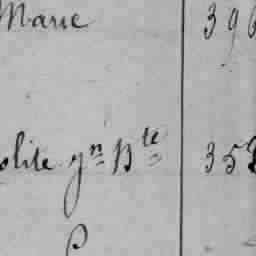 Marie 396
olite yn Bte 352